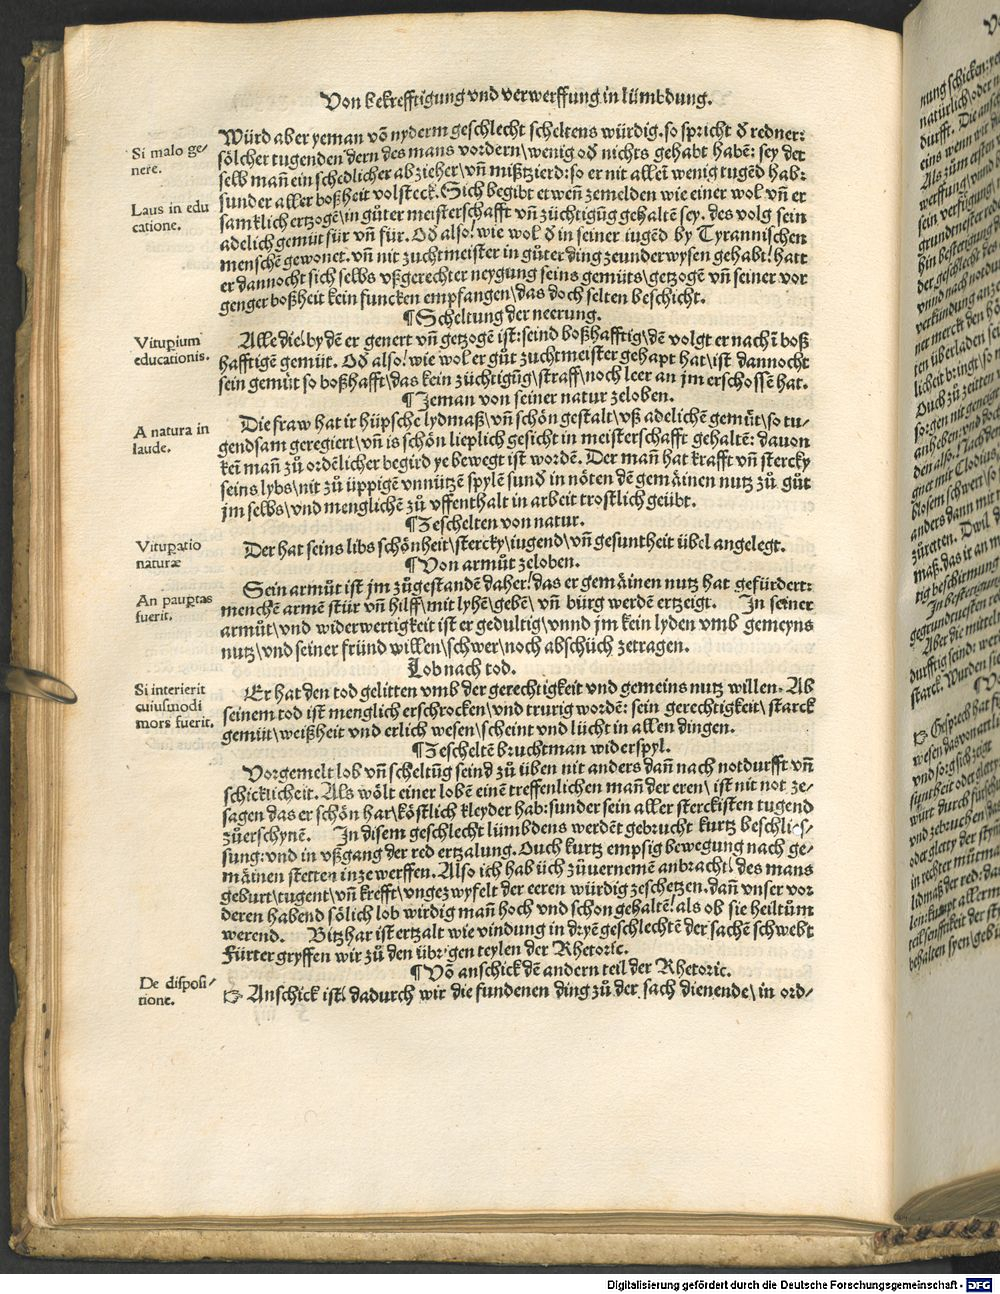 Von bekrefftigung vnd verwerffung in lümbdung.
Würd aber yeman võ nyderm geschlecht scheltens würdig. so spricht d redner:
sölcher tugenden dern des mans vordern\wenig od nichts gehabt habē: sey der
selb mañ ein schedlicher abzieher\vñ mißtzierd: so er nit alleī wenig tugēd hab:
sunder aller boßheit volsteck. Sich begibt etwen̄ zemelden wie einer wol vñ er
samklich ertzogē\in gůter meisterschafft vñ züchtigūg gehaltē sey. des volg sein
adelich gemüt für vñ für. Od also! wie wol d in seiner iugēd by Tyrannischen
menschē gewonet. vñ nit zuchtmeister in gůter ding zeunderwysen gehabt! hatt
er dannocht sich selbs vßgerechter neygung seins gemüts\getzogē vñ seiner vor
genger boßheit kein funcken empfangen\das doch selten beschicht.
¶Scheltung der neerung.
Alle die! by dē er genert vñ getzogē ist: seind boßhafftig\dē volgt er nach ī boß
hafftigē gemüt. Od also! wie wol er gůt zuchtmeister gehapt hat\ist dannocht
sein gemüt so boßhafft\das kein züchtigūg\straff\noch leer an jm erschossē hat.
¶Jeman von seiner natur zeloben.
Die fraw hat ir hüpsche lydmaß\vñ schön gestalt\vß adelichē gemüt\so tu⸗
gendsam geregiert\vñ is schön lieplich gesicht in meisterschafft gehaltē: dauon
keī mañ zů ordēlicher begird ye bewegt ist wordē. Der mañ hat krafft vñ stercky
seins lybs\nit zů üppigē vnnützē spylē sund in nöten dē gemäinen nutz zů gůt
jm selbs\vnd menglichē zů vffenthalt in arbeit trostlich geübt.
¶Zeschelten von natur.
Der hat seins libs schönheit\stercky\iugend\vñ gesuntheit übel angelegt.
¶Von armůt zeloben.
Sein armůt ist jm zůgestandē daher! das er gemäinen nutz hat gefürdert:
menchē armē stür vñ hilff\mit lyhē\gebē\ vñ bürg werdē ertzeigt. In seiner
armůt\vnd widerwertigkeit ist er gedultig\vnnd jm kein lyden vmb gemeyns
nutz\vnd seiner fründ willen\schwer\noch abschüch zetragen.
Lob nach tod.
Er hat den tod gelitten vmb der gerechtigkeit vnd gemeins nutz willen. Ab
seinem tod ist menglich erschrocken\vnd trurig wordē: sein gerechtigkeit\ starck
gemüt\weißheit vnd erlich wesen\scheint vnd lücht in allen dingen.
¶Zescheltē brucht man widerspyl.
Vorgemelt lob vñ scheltūg seind zů üben nit anders dañ nach notdurfft vñ
schicklicheit. Als wölt einer lobē einē treffenlichen mañ der eren\ ist nit not ze⸗
sagen das er schön har\köstlich kleyder hab: sunder sein aller sterckisten tugend
zůerschynē. In disem geschlecht lümbdens werdēt gebrucht kurtz beschlies⸗
sung: vnd in vßgang der red ertzalung. Ouch kurtz empsig bewegung nach ge⸗
mäinen stetten inzewerffen. Also ich hab üch zůuernemē anbracht\ des mans
geburt\tugent\vñ krefft\vngezwyfelt der eeren würdig zeschetzen. dañ vnser vor
deren habend sölich lob wirdig mañ hoch vnd schon gehaltē! als ob sie heiltům
werend. Bitzhar ist ertzalt wie vindung in dryē geschlechtē der sachē schwebt
Fürter gryffen wir zů den übrigen teylen der Rhetoric.
¶Võ anschick dē andern teil der Rhetoric.
☞ Anschick ist! dadurch wir die fundenen ding zů der sach dienende\ in ord⸗
Si malo ge⸗
nere.
Laus in edu
catione.
Vitupium
educationis.
A natura in
laude.
Vitupatio
naturæ
An paupertas
fuerit.
Si interierit
cuiusmodi
mors fuerit.
De disposi⸗
tione.
Digitalisierung gefördert durch die Deutsche Forschungsgemeinschaft - DFG